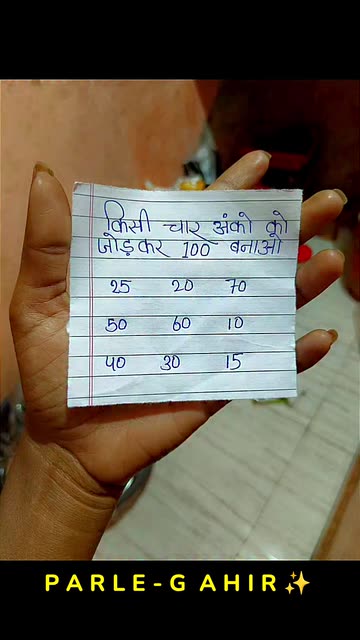 किसी चार अंको को
जोड़कर 100 बनाओ
25 20 70
50 60 10
40 30 15
PARLE-G AHIR✨